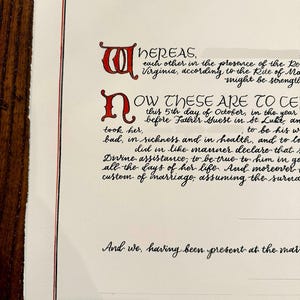 WHEREAS,
each other in the presence of the Re
Virginia, according to the Rite of Ma
might be strength
NOW THESE ARE TO CE
this 5th day of October, in the year
before Father Hurst in St Luke an
took her, to be his w
bad, in sickness and in health, and to lo
did in like manner declare that s
Divine assistance, to be true to him in go
all the days of her life. And moreover
custom of marriage, assuming the surna
And we, having been present at the mar